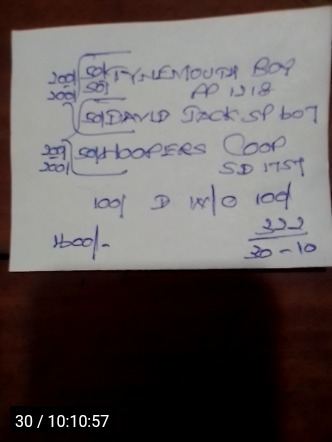 200/ 50/ TYNEMOUTH BOY
200/ 50/ AP 1218
50/ DAVID JACK SP 607
200/ 50/ HOOPERS COOP
200/ SD 1759
100/ D W/O 100/
222
1600/-
30-10
30 / 10:10:57